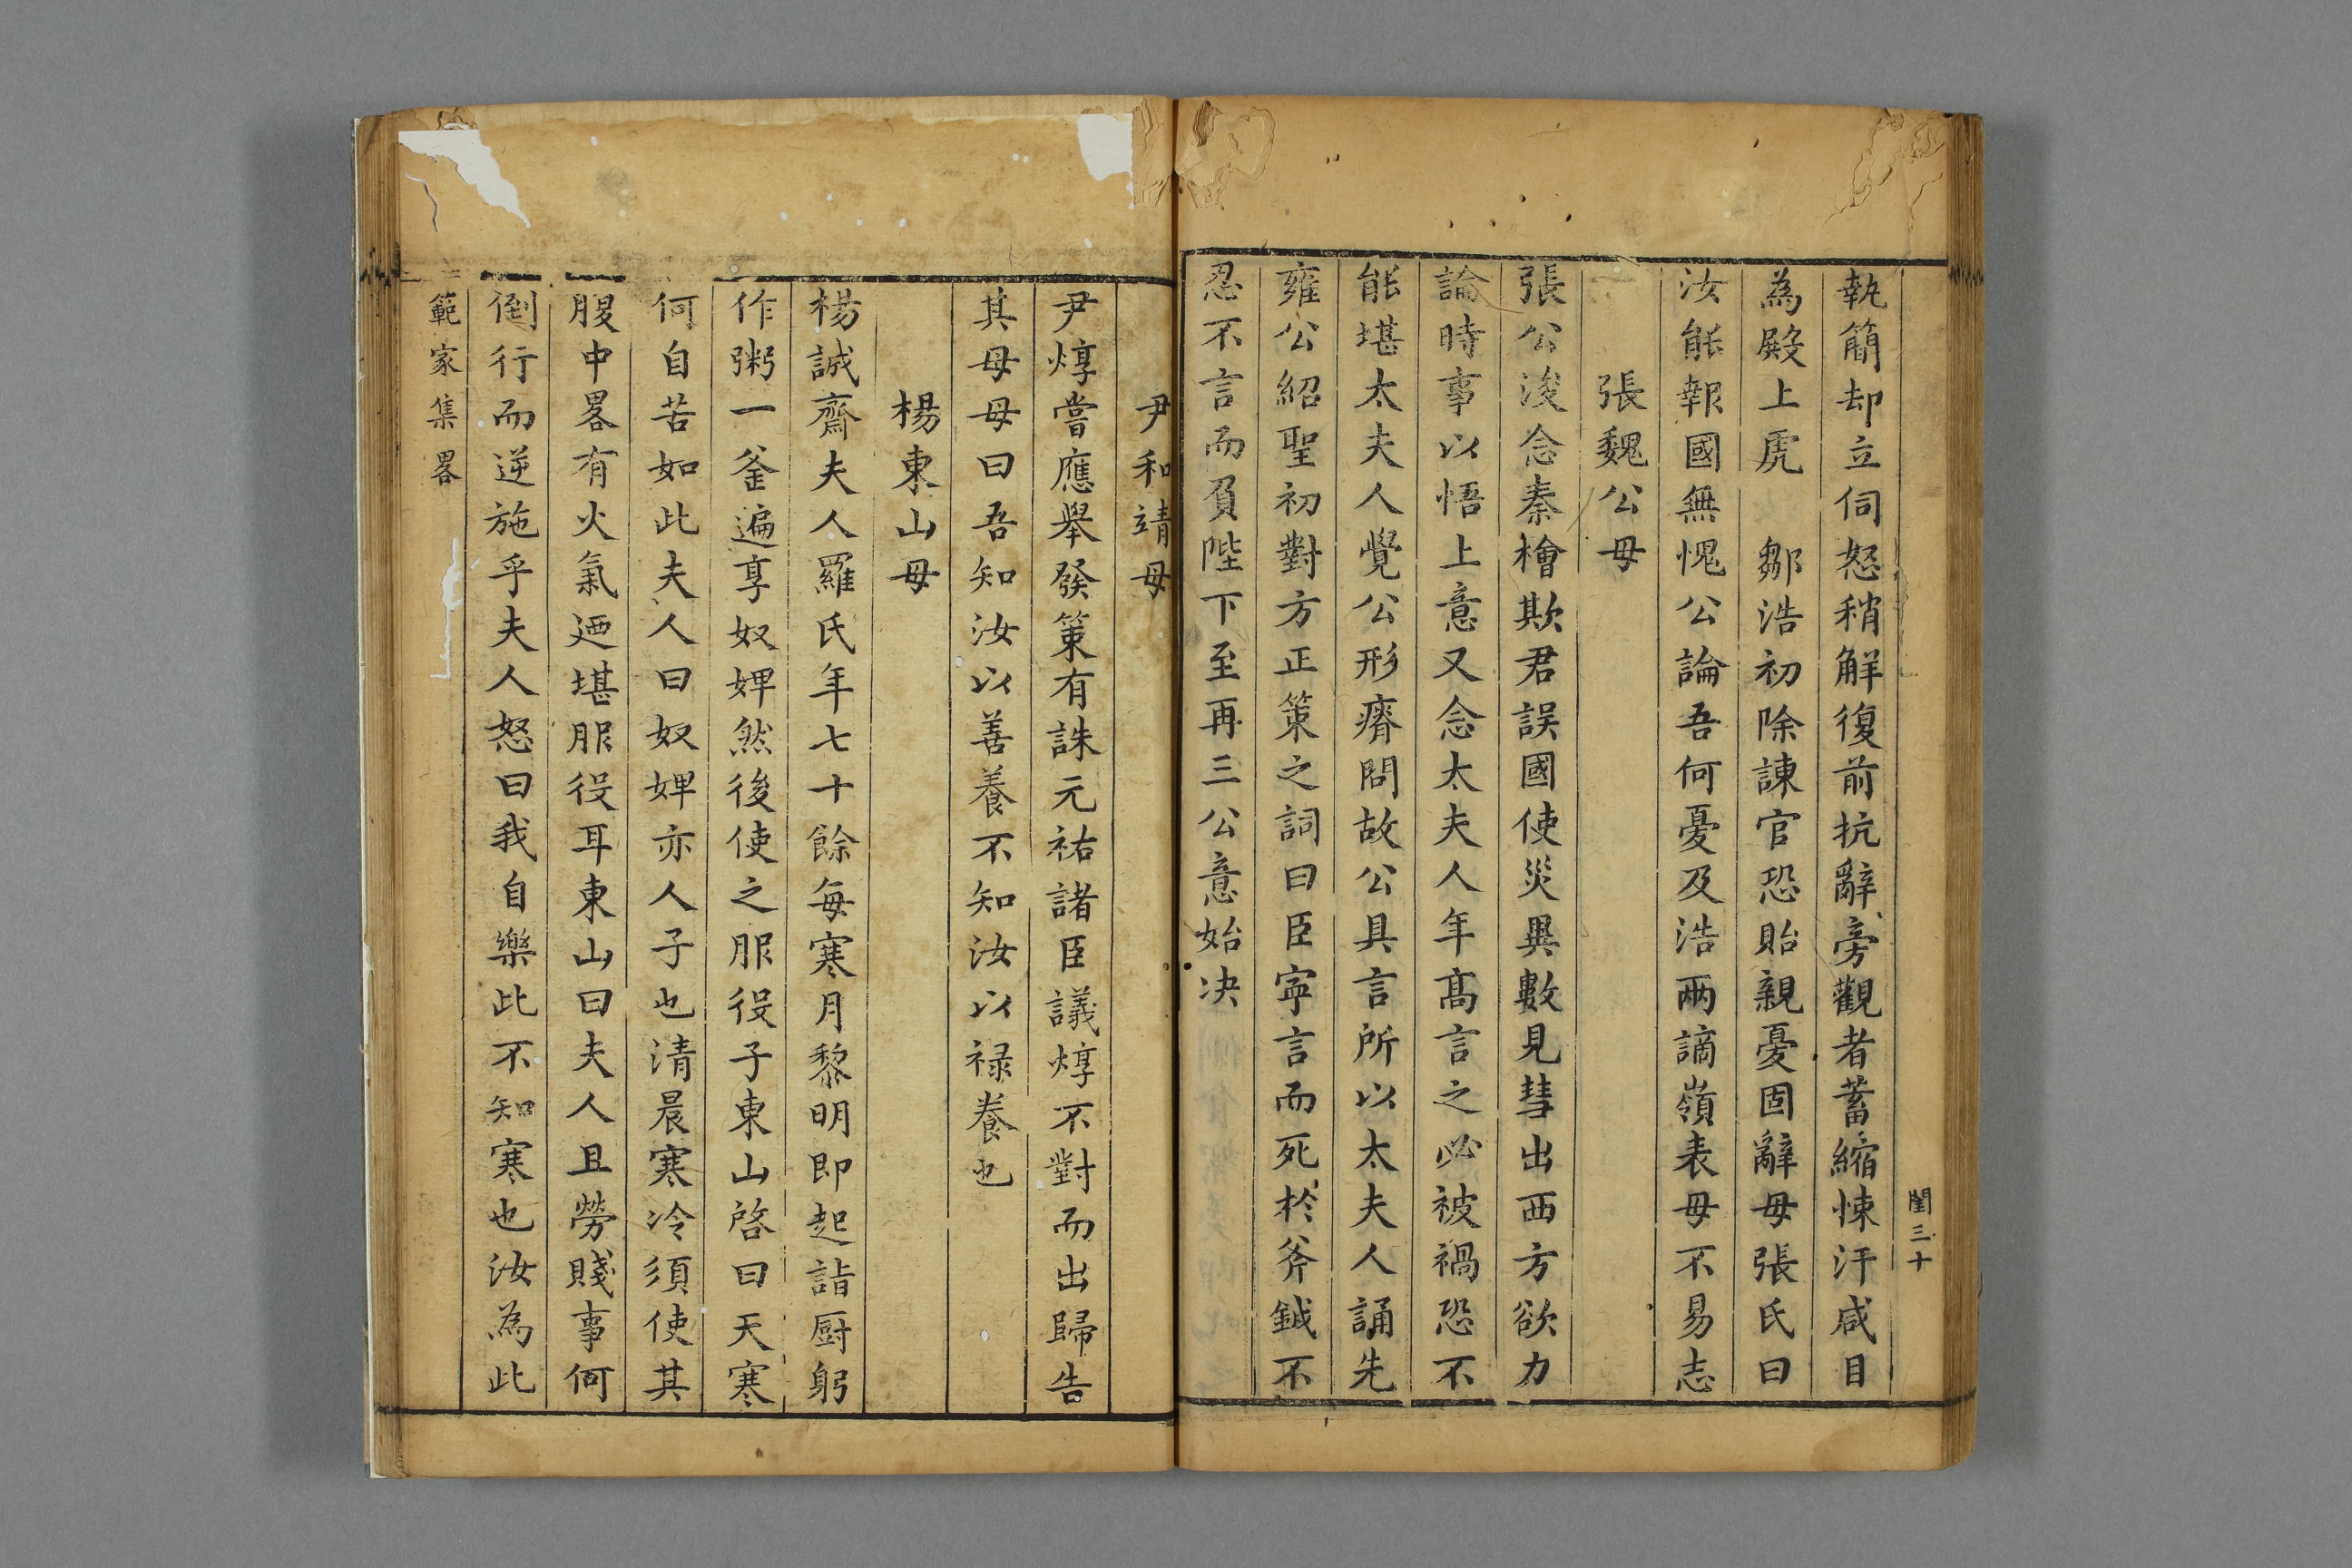 閨三十
執簡却立伺怒稍解復前抗辭旁觀者蓄縮悚汗咸目
為殿上虎　鄒浩初除諫官恐貽親憂固辭母張氏曰
汝能報國無愧公論吾何憂及浩兩謫嶺表母不易志
張魏公母
張公浚念秦檜欺君誤國使災異數見彗出西方欲力
論時事以悟上意又念太夫人年高言之必被禍恐不
能堪太夫人覺公形瘠問故公具言所以太夫人誦先
雍公紹聖初對方正策之詞曰臣寧言而死於斧鉞不
忍不言而負陛下至再三公意始决
尹和靖母
尹焞嘗應舉發策有誅元祐諸臣議焞不對而出歸告
其母母曰吾知汝以善養不知汝以祿養也
楊東山母
楊誠齋夫人羅氏年七十餘每寒月黎明即起詣厨躬
作粥一釜遍享奴婢然後使之服役子東山啓曰天寒
何自苦如此夫人曰奴婢亦人子也清晨寒冷須使其
腹中畧有火氣廼堪服役耳東山曰夫人且勞賤事何
倒行而逆施乎夫人怒曰我自樂此不知寒也汝為此
範家集畧